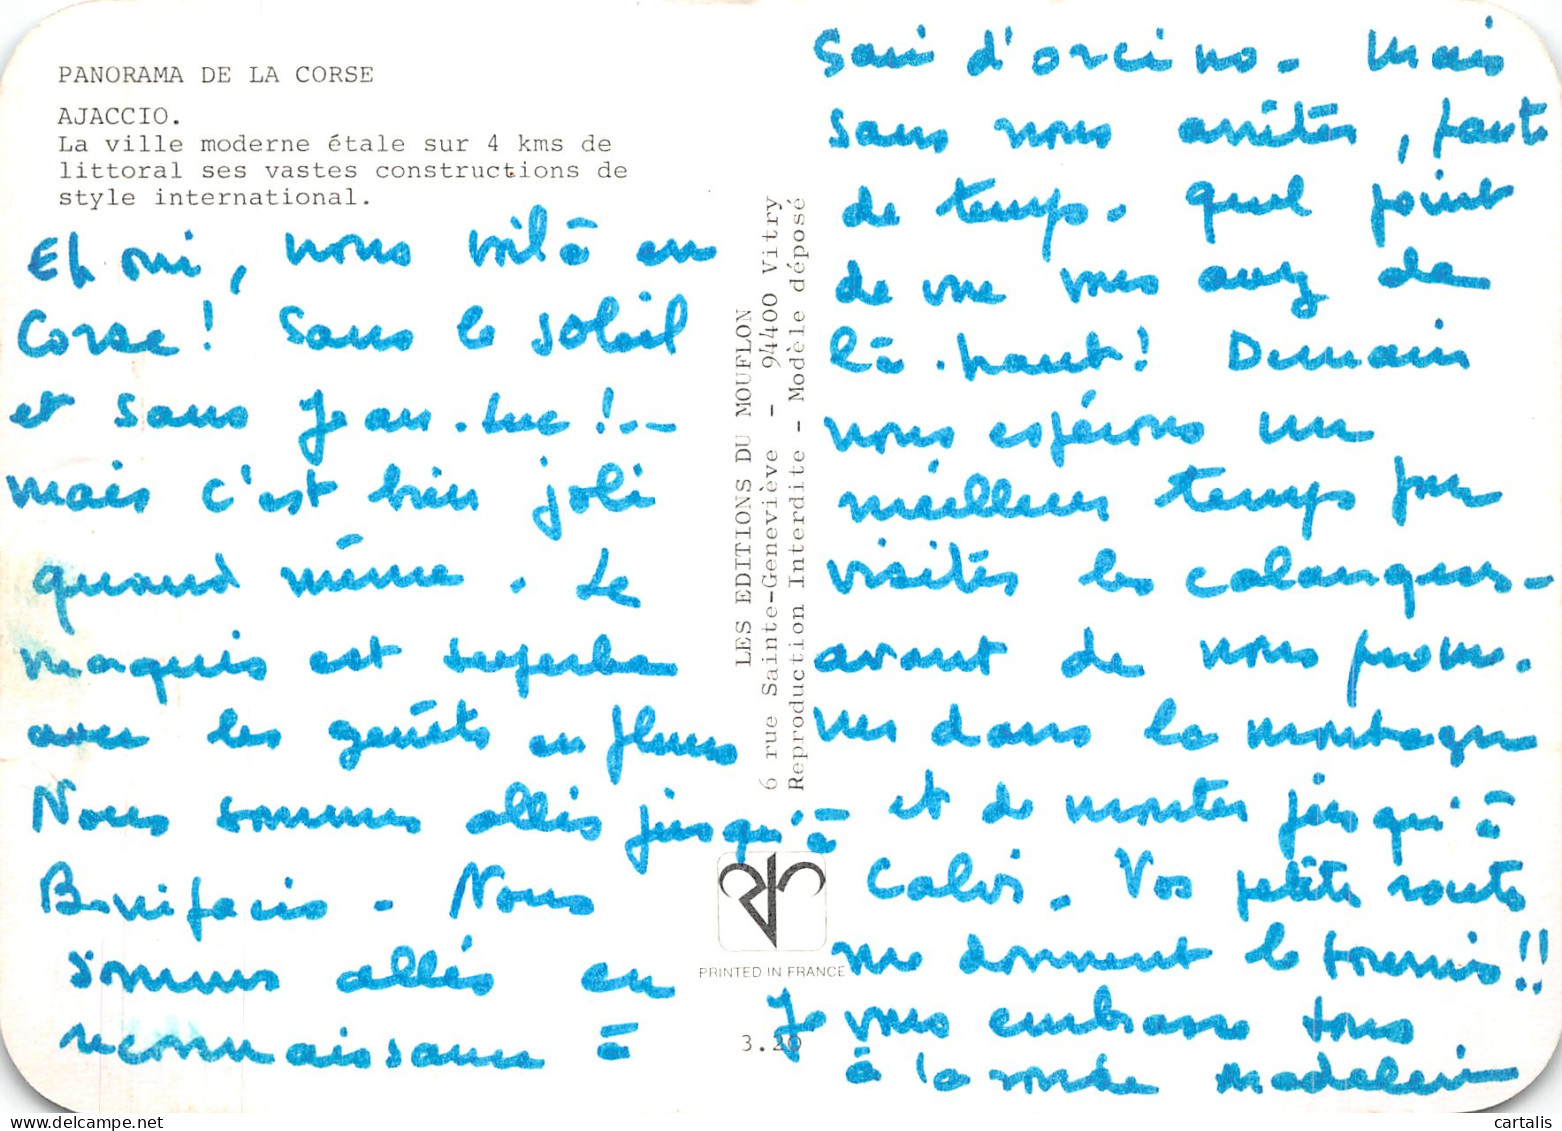 PANORAMA DE LA CORSE
AJACCIO.
La ville moderne étale sur 4 kms de
littoral ses vastes constructions de
style international.
Eh oui, nous voilà en
Corse! Sans le soleil
et sans Jean-Luc!..
mais c'est bien joli
quand même. Le
maquis est superbe
avec les genêts en fleurs
Nous sommes allés jusqu'à
Bonifacio - Nous
sommes allés en
reconnaissance à
Sari d'orcino. Mais
sans nous arrêter, faute
de temps. quel point
de vue vous avez de
là-haut! Demain
nous espérons un
meilleur temps pour
visiter les calanques -
avant de nous prome-
ner dans la montagne
et de monter jusqu'à
Calvi. Vos petites routes
me donnent le tournis!!
Je vous embrasse tous
à la ronde Madeleine
LES EDITIONS DU MOUFLON
6 rue Sainte-Geneviève - 94400 Vitry
Reproduction Interdite - Modèle déposé
PRINTED IN FRANCE
3.20
cartalis.com
cartalis